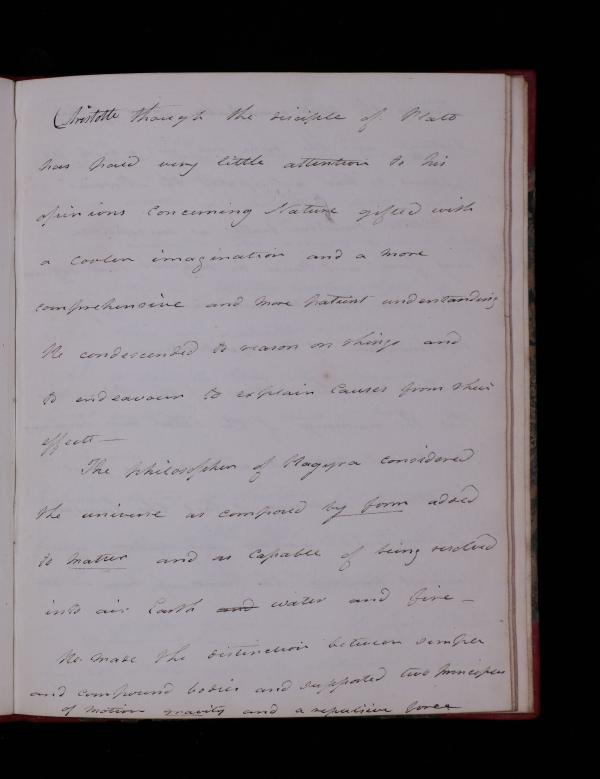 Aristotle though the disciple of Plato
has paid very little attention to his
opinions concerning Nature gifted with
a cooler imagination and a more
comprehensive and more patient understanding
He condescended to reason on things and
to endeavour to explain causes from their
effects —
The philosopher of Stagyra considered
the universe as composed by form added
to matter and as capable of being resolved
into air Earth and water and fire —
He made the distinction between simple
and compound bodies and supported two principles
of motion gravity and a repulsive force